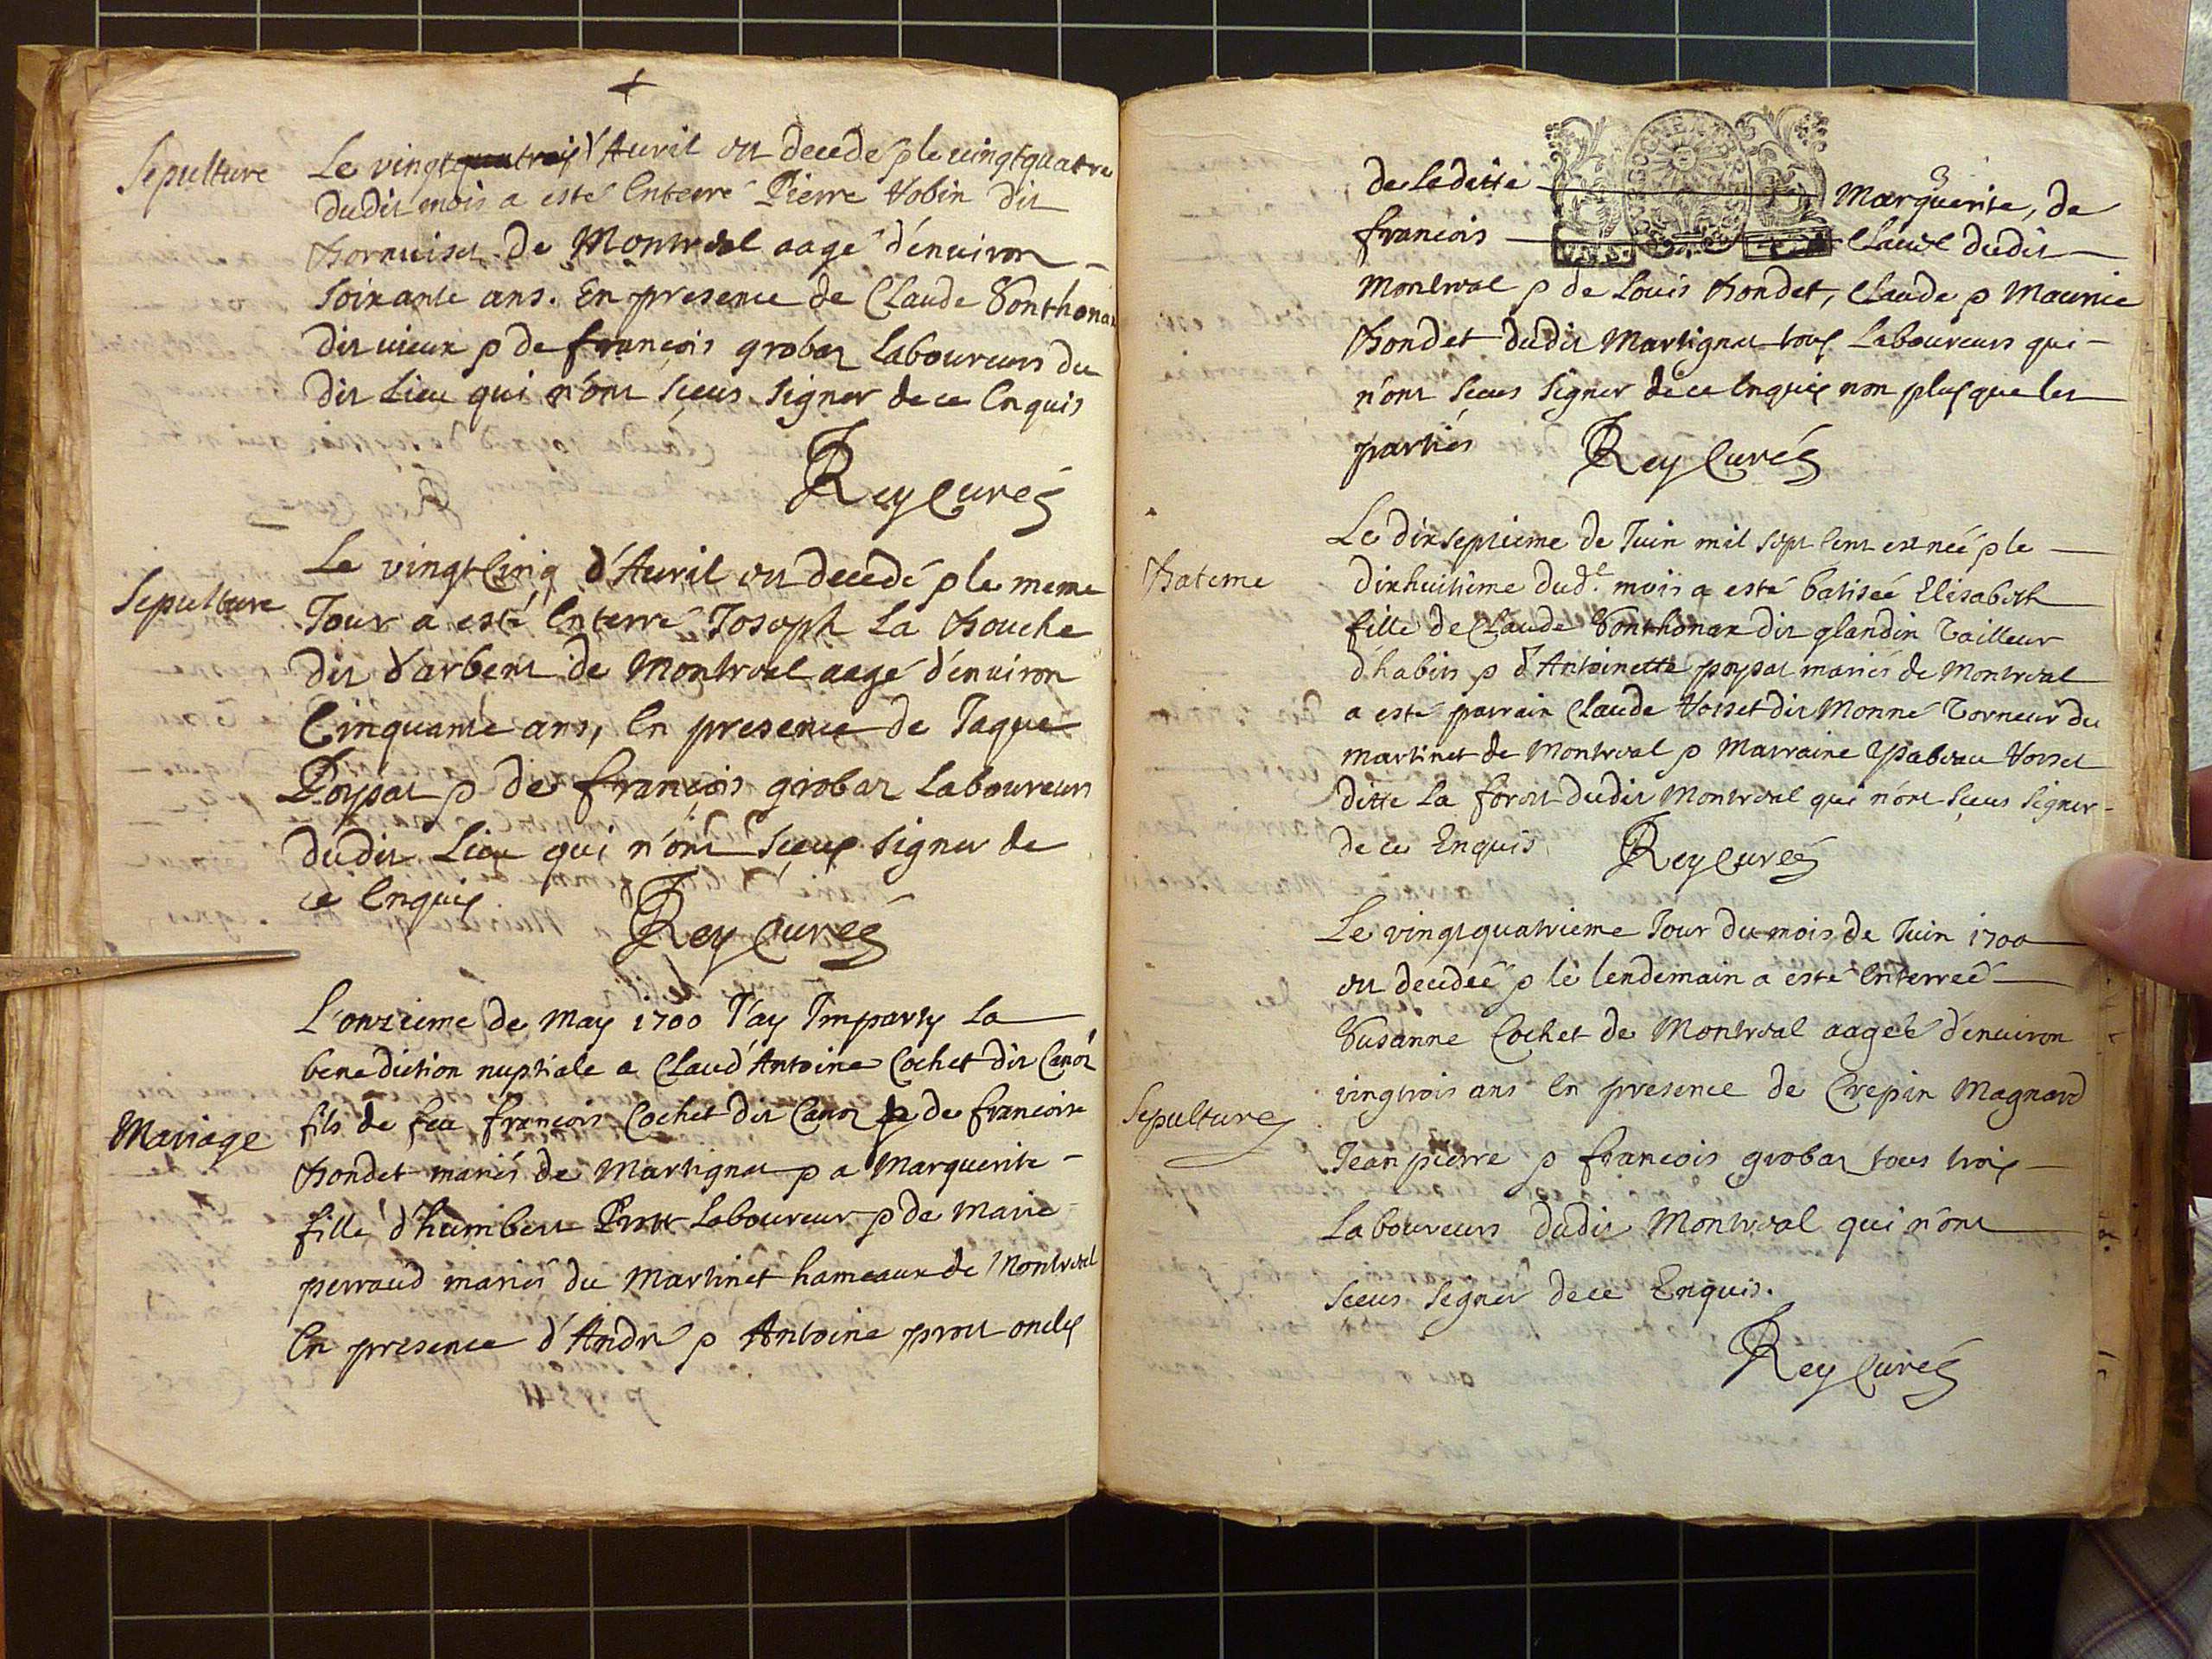 Sepulture
Le vingt d'Avril est decedé & le vingtquatre
dudit mois a esté Enterré Pierre Vobin dit
de Montreal aagé d'environ
soixante ans. En presence de Claude Ponthonax
dit vieux & de françois grobas Laboureurs du
dit Lieu qui n'ont sceus signer de ce Enquis
Rey Curé
Sepulture
Le vingtcinq d'Avril est decedé & le meme
Jour a esté Enterré Joseph La Bouche
dit d'arbent de Montreal aagé d'environ
Cinquante ans, En presence de Jaque
Poypat & de françois grobas Laboureurs
dudit Lieu qui n'ont sceus signer de
ce Enquis
Rey Curé
Mariage
L'onzieme de May 1700 J'ay Imparty La
benediction nuptiale a Claud'Antoine Cochet dit Canoz
fils de feu françois Cochet dit Canoz & de francoise
Bondet mariés de Martignat & a Marguerite
fille d'humbert Prost Laboureur & de Marie
perraud mariés du Martinet hameaux de Montreal
En presence d'André & Antoine prost oncles
3
de Laditte Marguerite, de
francois Claude dudit
Montreal & de Louis Bondet, Claude & Maurice
Bondet dudit Martignat tous Laboureurs qui
n'ont sceus signer de ce Enquis non plus que les
partiés
Rey Curé
Bateme
Le dixseptieme de Juin mil sept Cent est neé & le
dixhuitieme dud. mois a esté batiseé Elisabeth
fille de Claude Ponthonax dit glandin Tailleur
d'habits & d'Antoinette poypat mariés de Montreal
a esté parrain Claude Vosset dit Monné Torneur du
martinet de Montreal & Marraine Ysabeau Vosset
ditte La forest dudit Montreal qui n'ont sceus signer
de ce Enquis
Rey Curé
Sepulture
Le vingtquatrieme Jour du mois de Juin 1700
est decedeé & le lendemain a esté Enterreé
Susanne Cochet de Montreal aageé d'environ
vingtrois ans En presence de Crepin Magnard
Jean pierre & francois grobas tous trois
Laboureurs dudit Montreal qui n'ont
sceus signer de ce Enquis.
Rey Curé